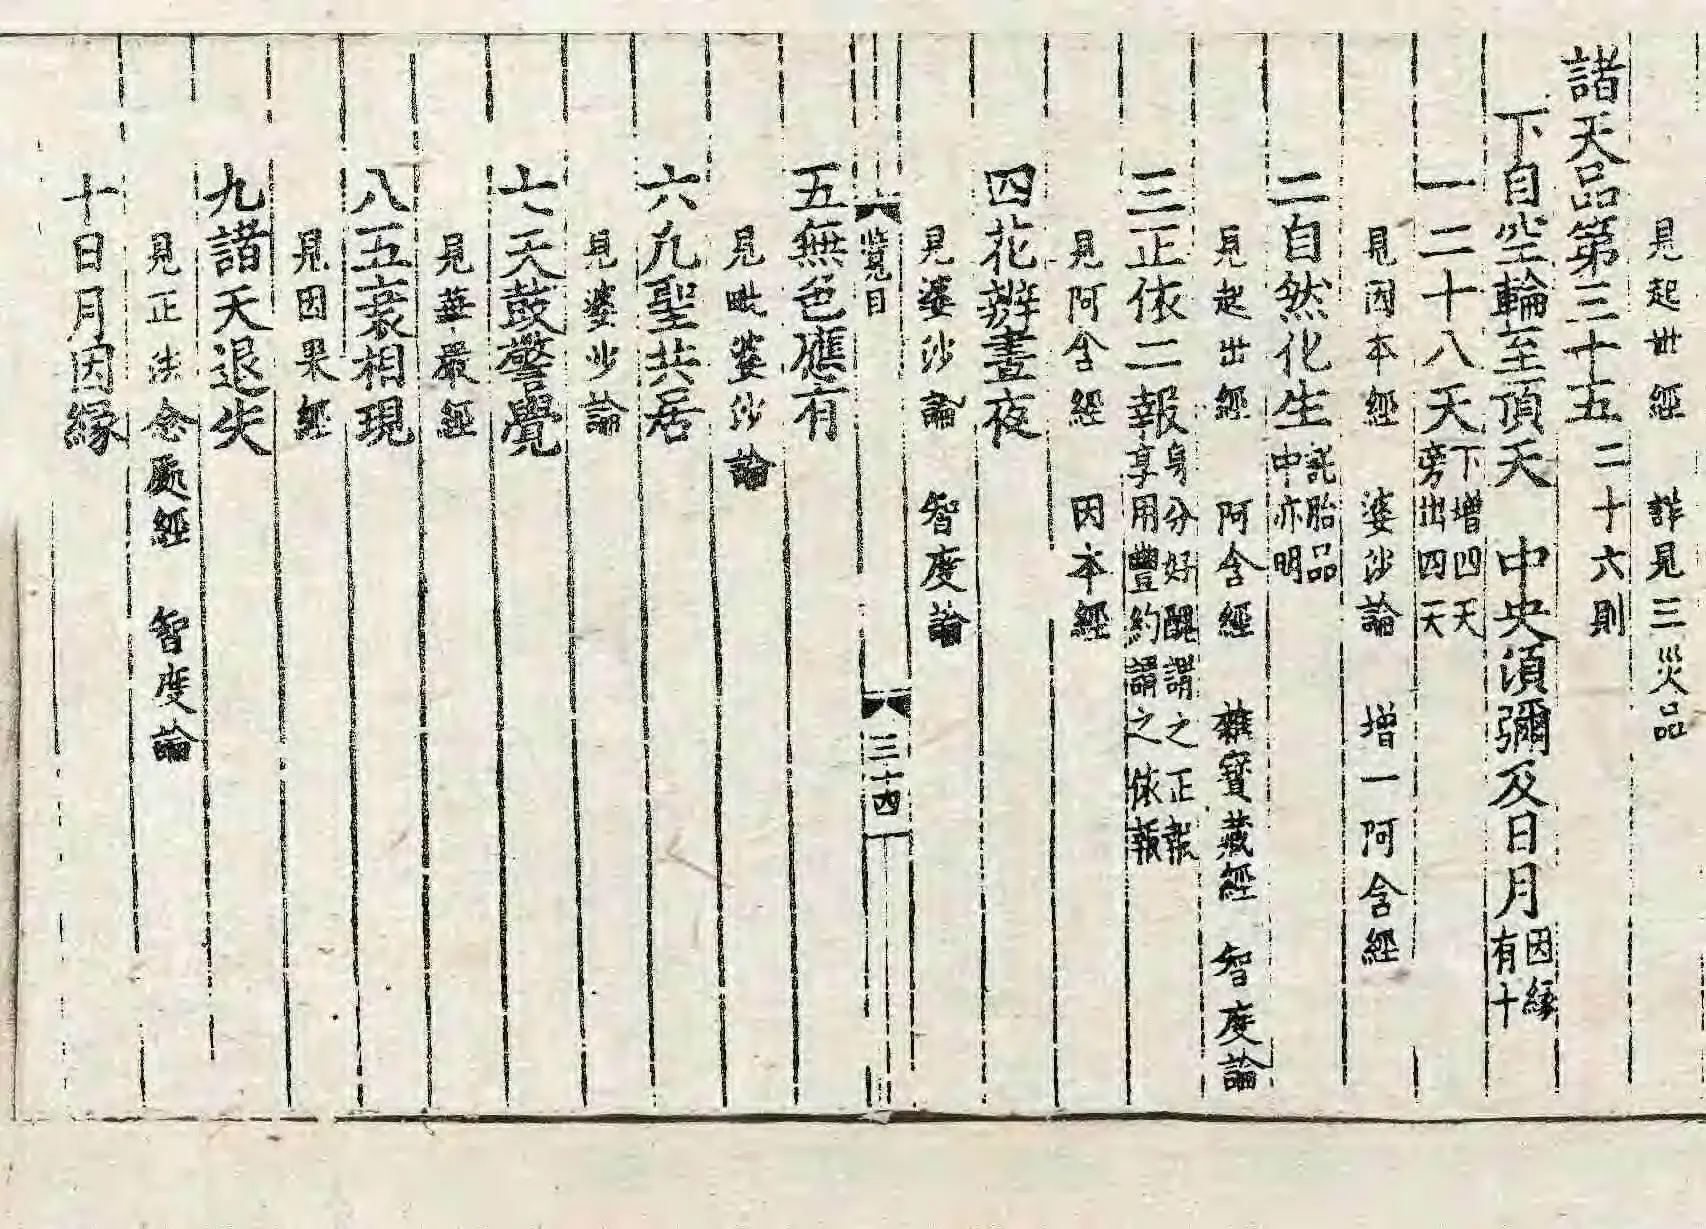 見起世経　詳見三災品
諸天品第三十五　二十六則
下自空輪至頂天　中央湏彌及日月因縁有十
一二十八天下增四天旁出四天
見因本經　婆沙論　增一阿含經
二自然化生託胎品中亦明
見起出經　阿含經　雜寶藏經　智度論
三正依二報身分好醜謂之正報享用豐約謂之依報
見阿含經　因本經
四花辨晝夜
見婆沙論　智度論
覽目　三十四
五無色應有
見毗婆沙論
六凡聖共居
見婆沙論
七天鼓警覺
見華嚴經
八五衰相現
見因果經
九諸天退失
見正法念處經　智度論
十日月因縁